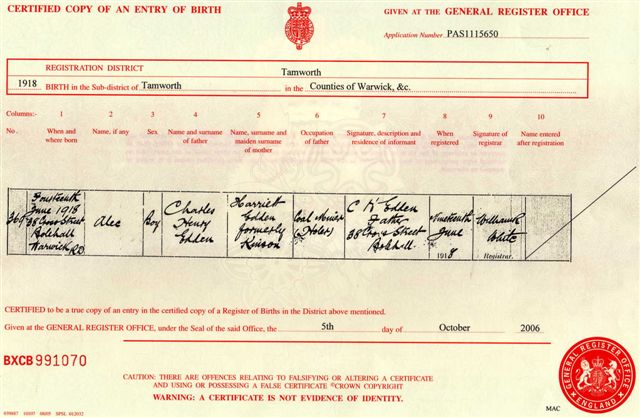 CERTIFIED COPY OF AN ENTRY OF BIRTH
GIVEN AT THE GENERAL REGISTER OFFICE
Application Number PAS1115650
REGISTRATION DISTRICT Tamworth
1918 BIRTH in the Sub-district of Tamworth in the Counties of Warwick, &c.
Columns:- 1 2 3 4 5 6 7 8 9 10
No. When and where born Name, if any Sex Name and surname of father Name, surname and maiden surname of mother Occupation of father Signature, description and residence of informant When registered Signature of registrar Name entered after registration
Fourteenth
June 1918
38 Cross Street
Bolehall
Warwick R.D
Alec
Boy
Charles
Henry
Edden
Harriett
Edden
formerly
Kinson
Coal Miner
C H Edden
Father
38 Cross Street
Bolehall
Nineteenth
June
1918
White
Registrar.
CERTIFIED to be a true copy of an entry in the certified copy of a Register of Births in the District above mentioned.
Given at the GENERAL REGISTER OFFICE, under the Seal of the said Office, the 5th day of October 2006
BXCB 991070
CAUTION: THERE ARE OFFENCES RELATING TO FALSIFYING OR ALTERING A CERTIFICATE
AND USING OR POSSESSING A FALSE CERTIFICATE ©CROWN COPYRIGHT
WARNING: A CERTIFICATE IS NOT EVIDENCE OF IDENTITY.
GENERAL REGISTER OFFICE
ENGLAND
MAC